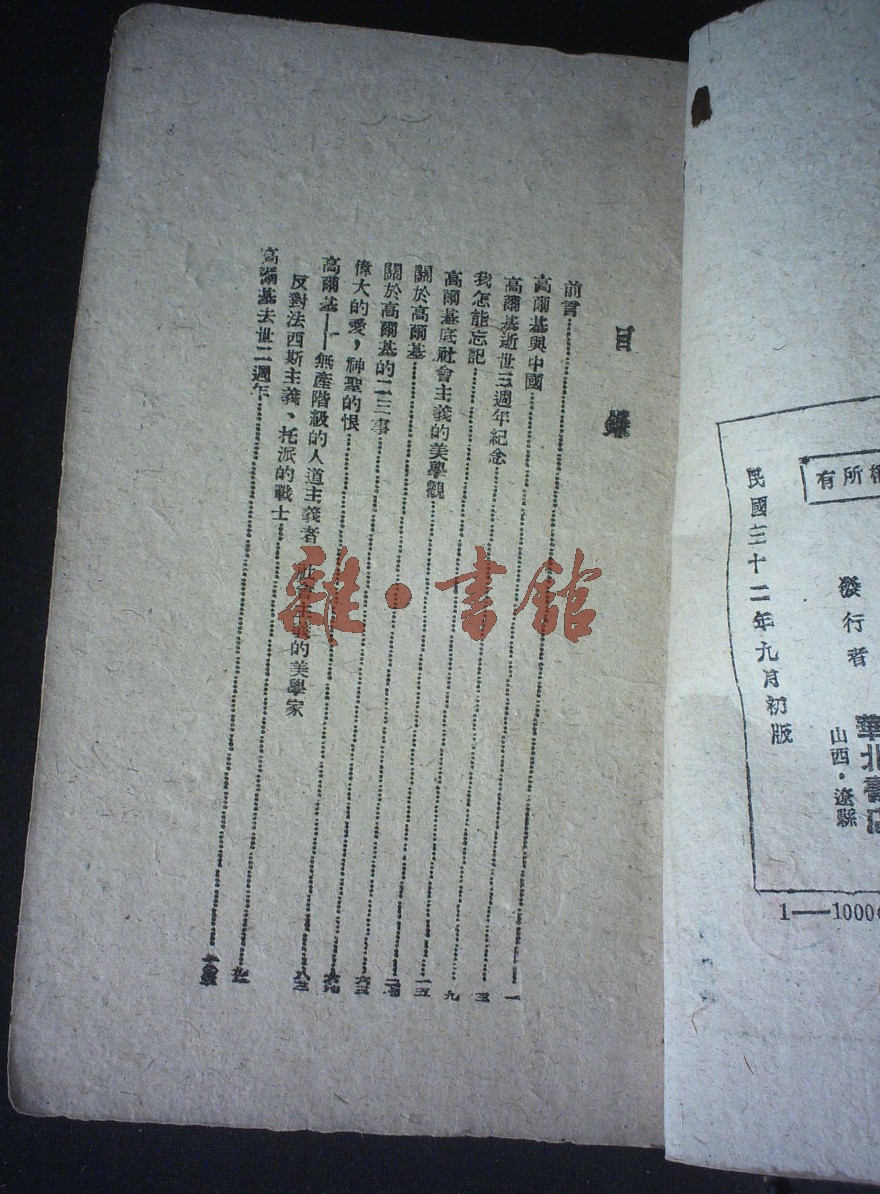 目錄
前言
高爾基與中國……一
高爾基逝世三週年紀念……三
我怎能忘記……九
高爾基底社會主義的美學觀……一五
關於高爾基
關於高爾基的二三事……六三
偉大的愛,神聖的恨
高爾基——無產階級的人道主義者 社會主義的美學家
反對法西斯主義、托派的戰士
高爾基去世二週年
有所權
發行者
華北書店
山西·遼縣
民國三十二年九月初版
1——1000
雜·書館